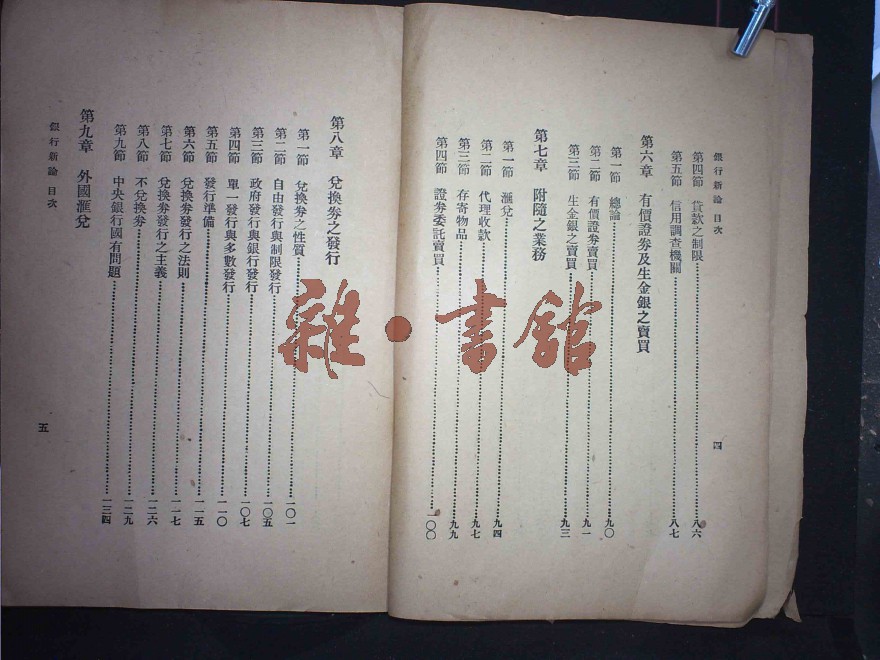 銀行新論 目次
第四節 貸款之制限……八六
第五節 信用調查機關……八七
第六章 有價證券及生金銀之賣買
第一節 總論……九〇
第二節 有價證券賣買……九一
第三節 生金銀之賣買……九三
第七章 附隨之業務
第一節 滙兌……九四
第二節 代理收款……九七
第三節 存寄物品……九九
第四節 證券委託賣買……一〇〇
四
第八章 兌換券之發行
第一節 兌換券之性質……一〇一
第二節 自由發行與制限發行……一〇五
第三節 政府發行與銀行發行……一〇七
第四節 單一發行與多數發行……一一〇
第五節 發行準備……一一五
第六節 兌換券發行之法則……一一七
第七節 兌換券發行之主義……一二六
第八節 不兌換券……一二九
第九節 中央銀行國有問題……一三四
第九章 外國滙兌
銀行新論 目次
五
雜·書館